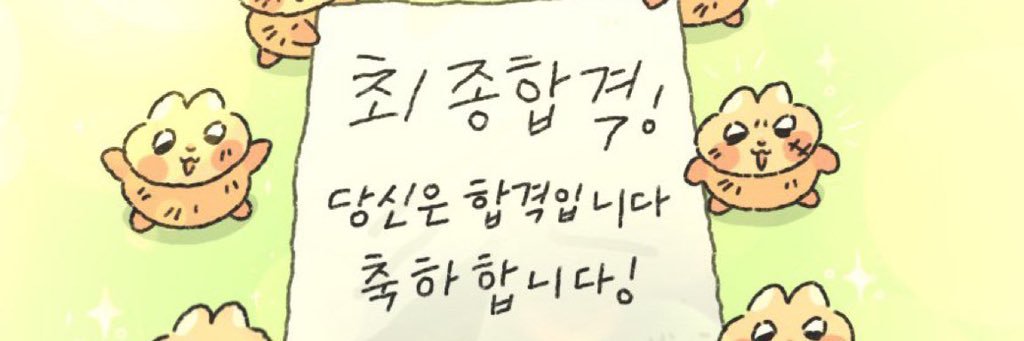 최종합격!
당신은 합격입니다
축하합니다!